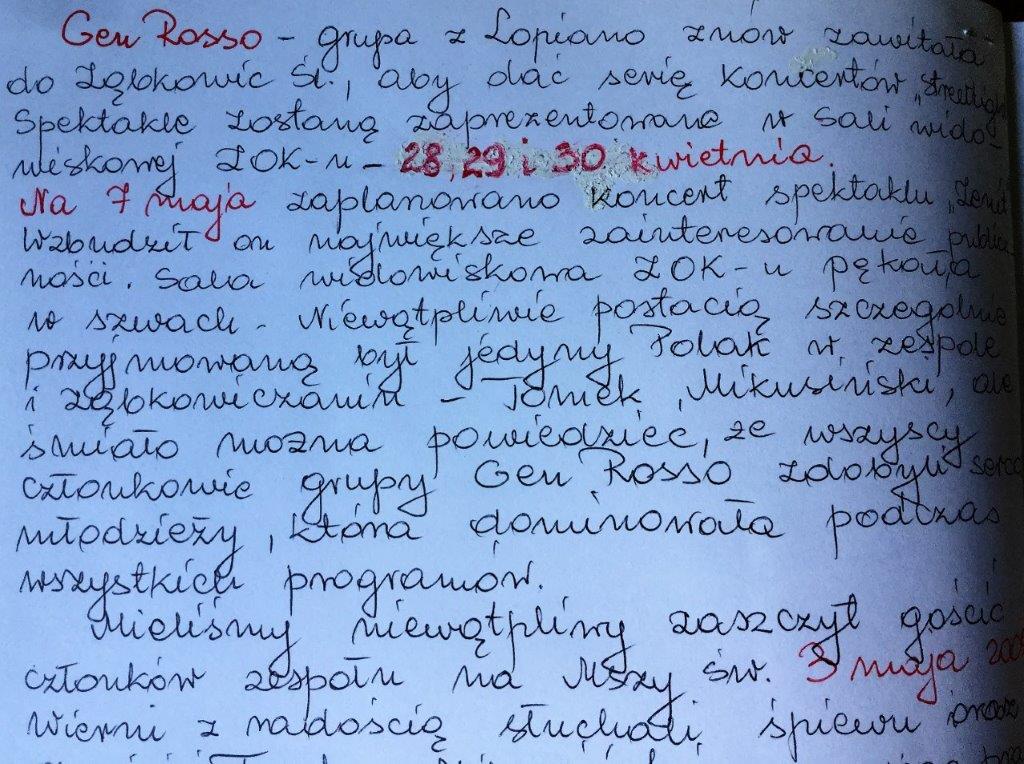 Gen Rosso - grupa z Lopiano znów zawitała
do Ząbkowic Śl., aby dać serię koncertów „Streetligh
Spektakle zostaną zaprezentowane w sali wido-
wiskowej ZOK-u - 28, 29 i 30 kwietnia.
Na 7 maja zaplanowano koncert spektaklu „Zenit
Wzbudził on największe zainteresowanie public
ności. Sala widowiskowa ZOK-u pękała
w szwach. Niewątpliwie postacią szczególnie
przyjmowaną był jedyny Polak w zespole
i ząbkowiczanin - Tomek Mikusiński, ale
śmiało można powiedzieć, że wszyscy
członkowie grupy Gen Rosso zdobyli serca
młodzieży, która dominowała podczas
wszystkich programów.
Mieliśmy niewątpliwy zaszczyt gościć
członków zespołu na Mszy św. 3 maja
Wierni z radością słuchali śpiewu oraz